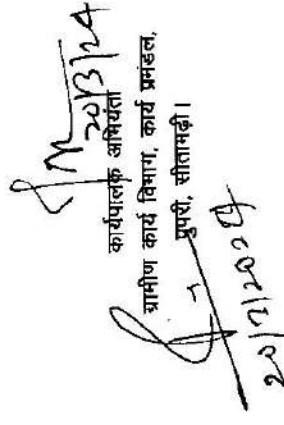 20/3/24
कार्यपालक अभियंता
ग्रामीण कार्य विभाग, कार्य प्रमंडल,
पुपरी, सीतामढ़ी।